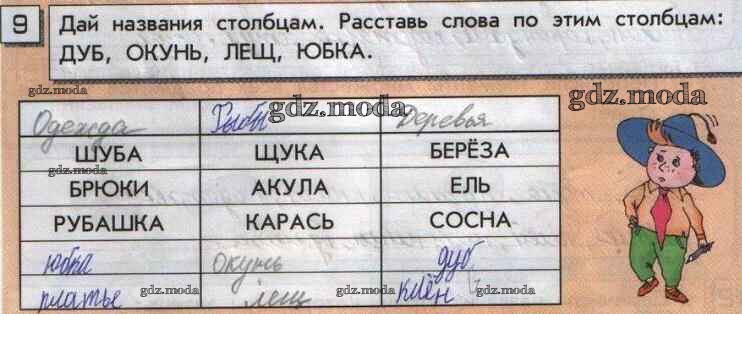 9 Дай названия столбцам. Расставь слова по этим столбцам:
ДУБ, ОКУНЬ, ЛЕЩ, ЮБКА.
gdz.moda
gdz.moda gdz.moda gdz.moda
Одежда Рыбы Деревья
ШУБА ЩУКА БЕРЁЗА
БРЮКИ АКУЛА ЕЛЬ
РУБАШКА КАРАСЬ СОСНА
юбка окунь дуб
платье лещ клён
gdz.moda gdz.moda gdz.moda